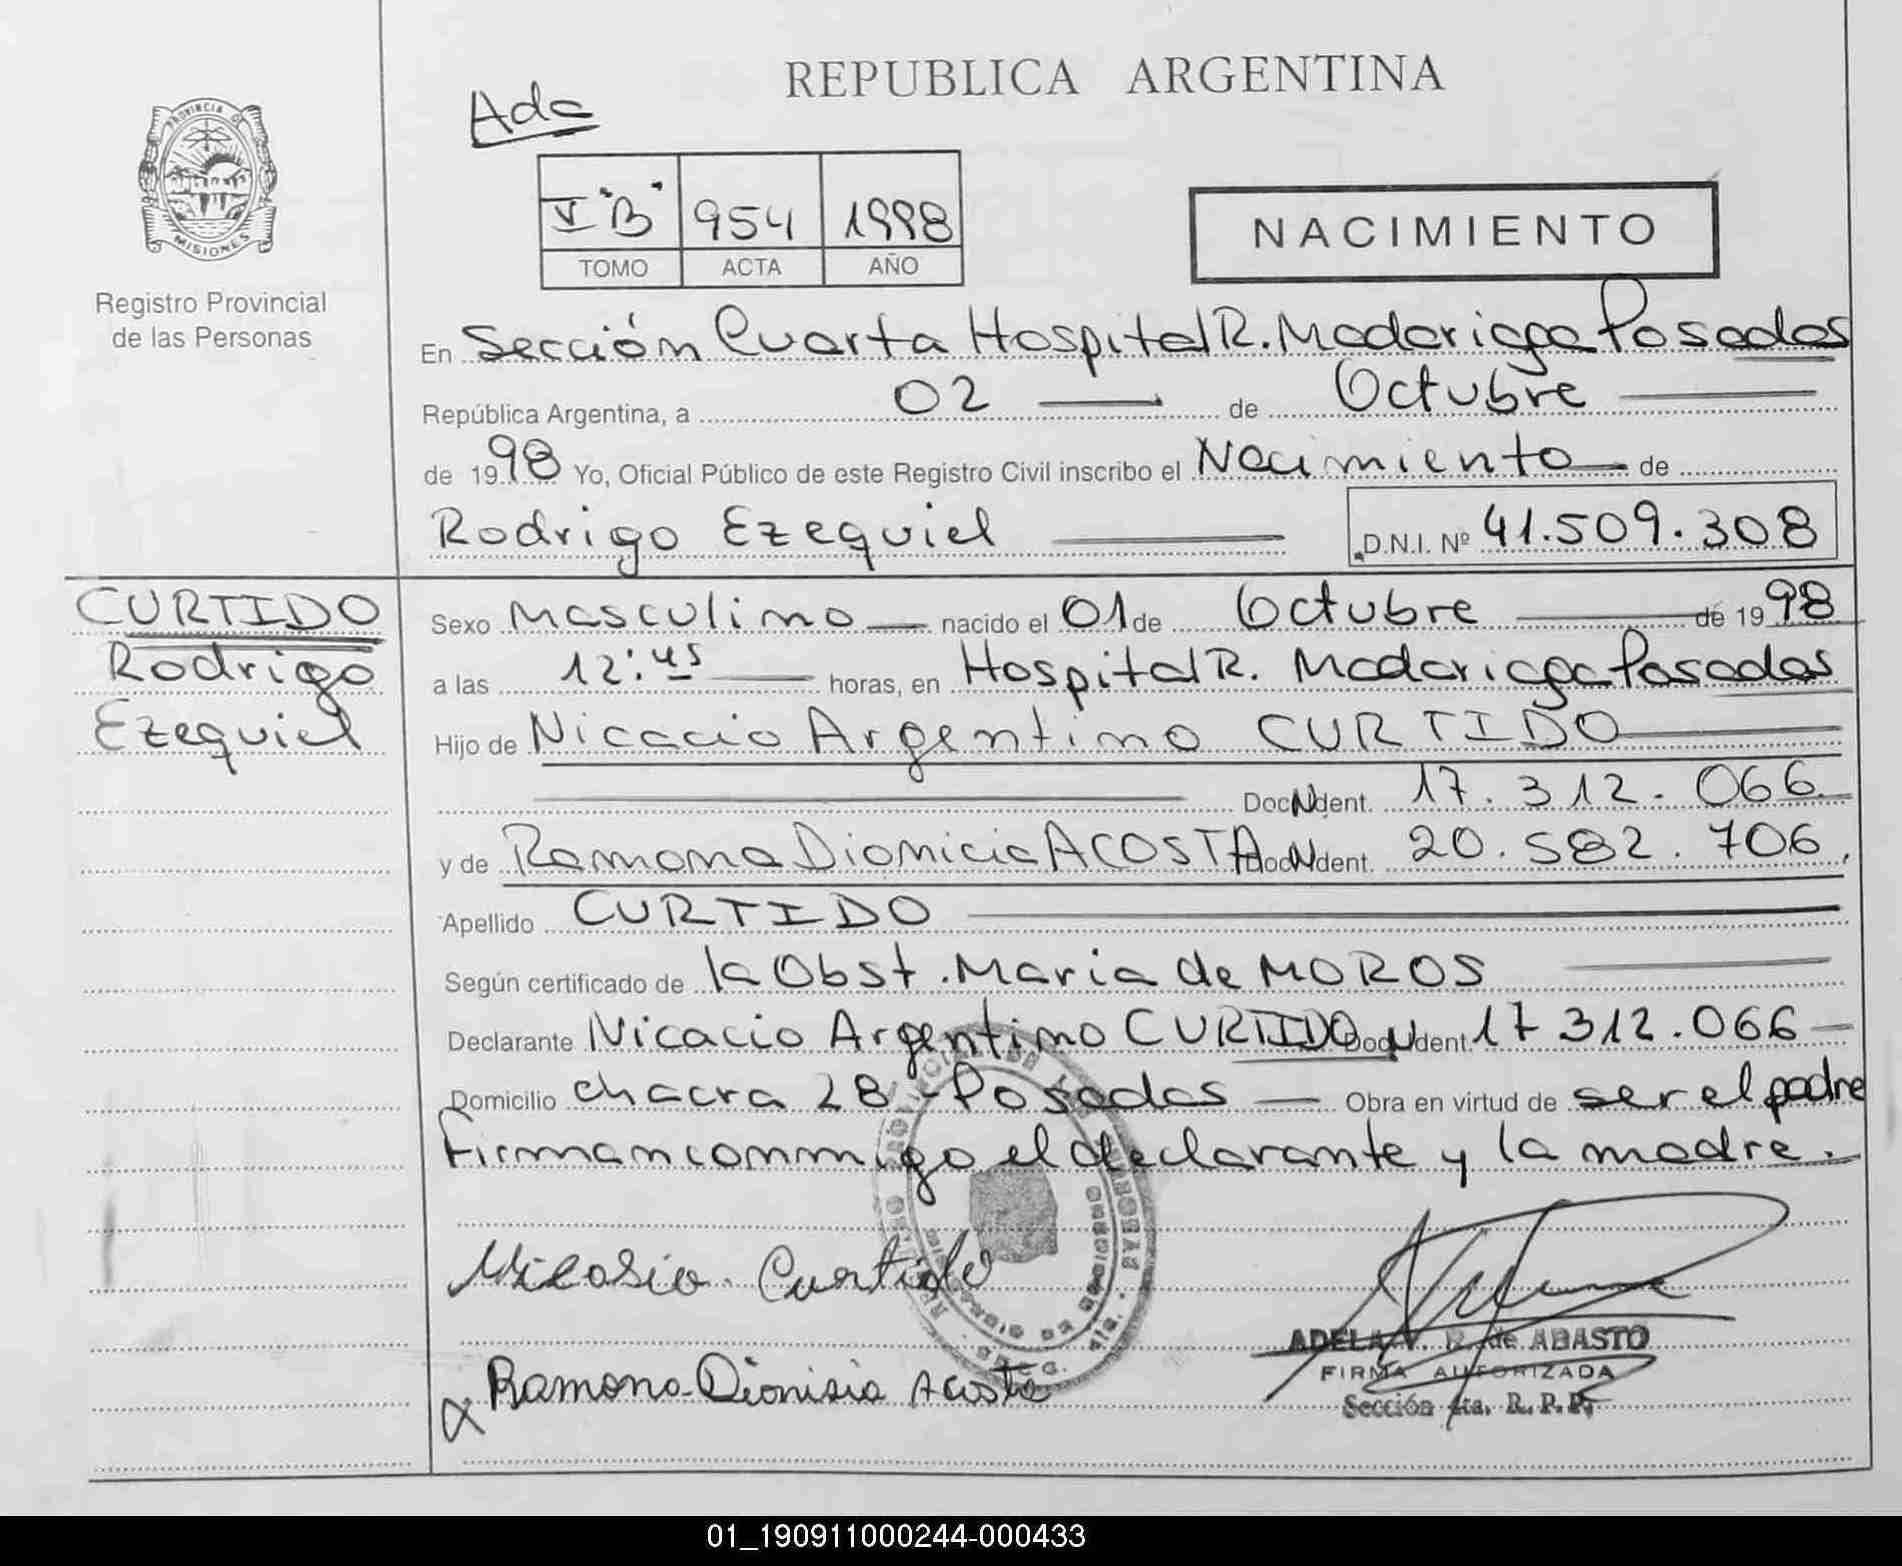 REPUBLICA ARGENTINA
Ada
PROVINCIA
MISIONES
Registro Provincial
de las Personas
"B" 954 1998
TOMO ACTA AÑO
NACIMIENTO
En Sección Cuarta Hospital R. Madariaga Posadas
República Argentina, a 02 de Octubre
de 1998 Yo, Oficial Público de este Registro Civil inscribo el Nacimiento de
Rodrigo Ezequiel D.N.I. Nº 41.509.308
CURTIDO
Rodrigo
Ezequiel
Sexo Masculino nacido el 01 de Octubre de 1998
a las 12:45 horas, en Hospital R. Madariaga Posadas
Hijo de Nicacio Argentino CURTIDO
Doc. Ident. 17.312.066
y de Ramona Dionicia ACOSTA Doc. Ident. 20.582.706
Apellido CURTIDO
Según certificado de la Obst. Maria de MOROS
Declarante Nicacio Argentino CURTIDO Doc. Ident. 17 312.066
Domicilio chacra 28 - Posadas Obra en virtud de ser el padre
Firman conmigo el declarante y la madre.
Nicasio Curtido
Ramona Dionisia Acosta
ADELA V. R. de ABASTO
FIRMA AUTORIZADA
Sección 4ta. R. P. P.
01_190911000244-000433